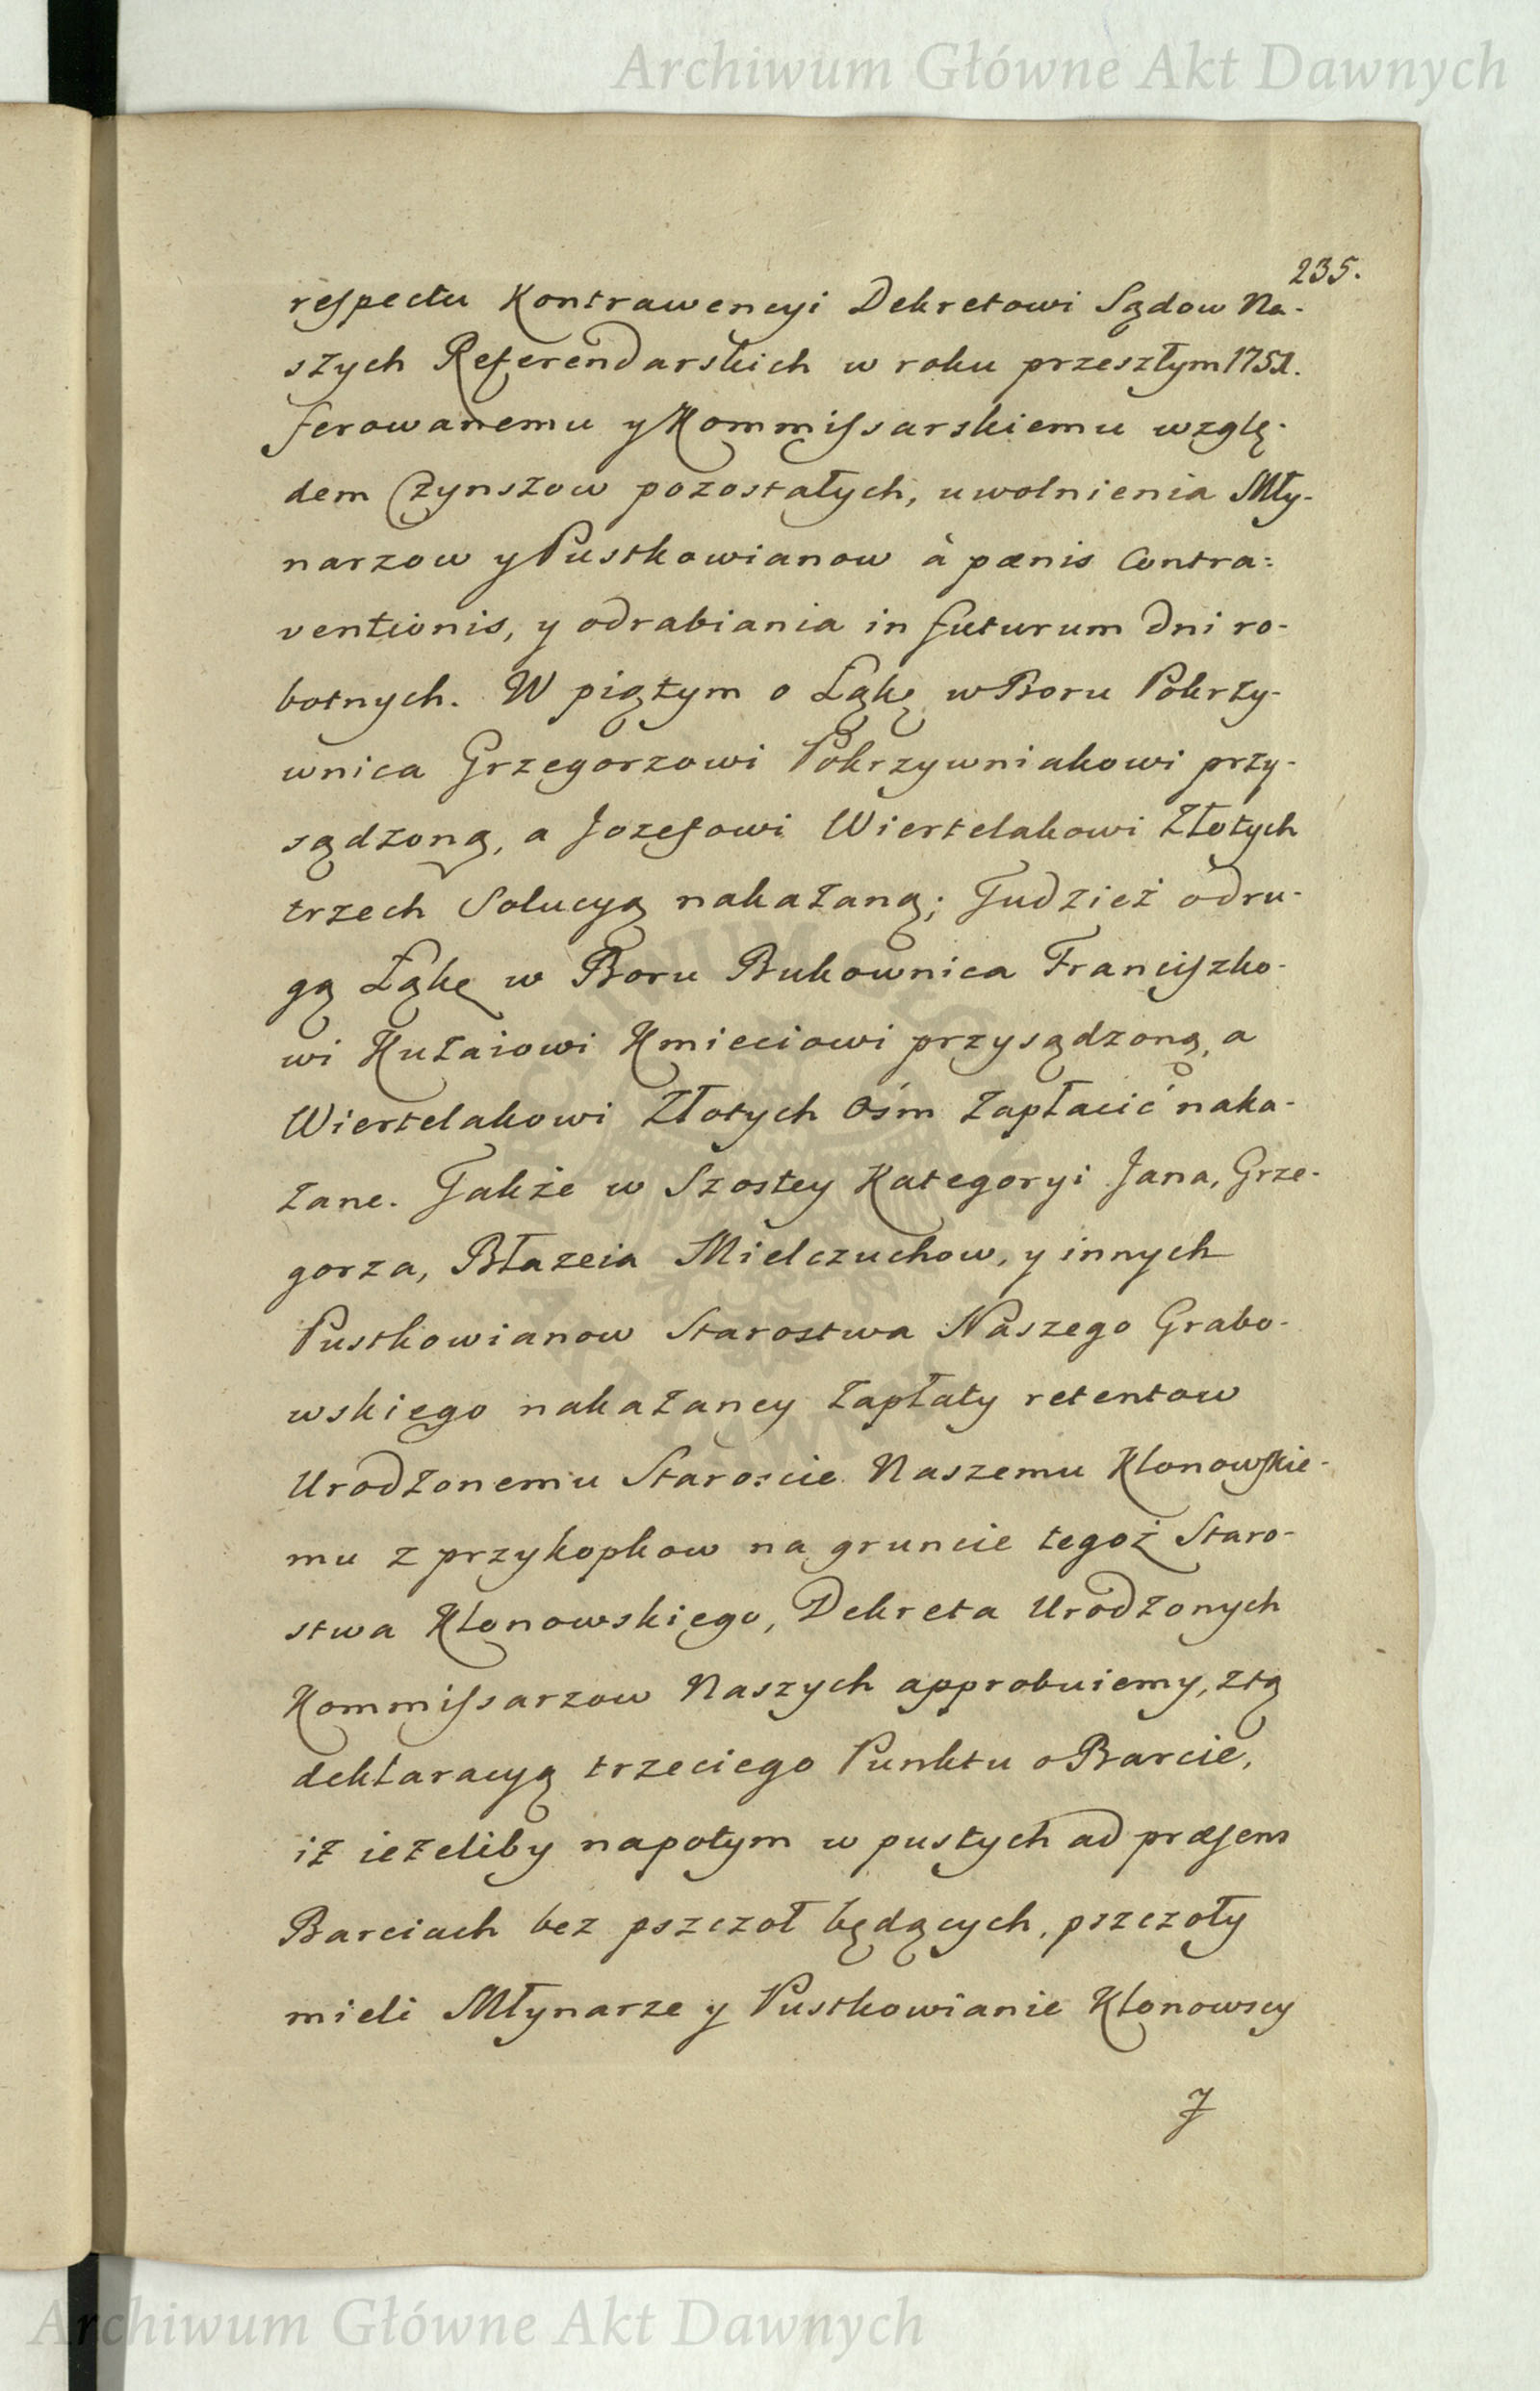 Archiwum Główne Akt Dawnych
235.
respectu Kontrawencyi Dekretowi Sądow Na-
szych Referendarskich w roku przeszłym 1751.
ferowanemu y Kommissarskiemu wzglę-
dem Czynszow pozostałych, uwolnienia Mły-
narzow y Pustkowianow à pænis Contra=
ventionis, y odrabiania in futurum dni ro-
botnych. W piątym o Łąkę w Boru Pokrzy-
wnica Grzegorzowi Pokrzywniakowi przy-
sądzoną, a Jozefowi Wiertelakowi Złotych
trzech Solucyą nakazaną; Tudzież o dru-
gą Łąkę w Boru Bukownica Franciszko-
wi Kuzaiowi Kmieciowi przysądzoną, a
Wiertelakowi Złotych Ośm zapłacić naka-
zane. Także w Szostey Kategoryi Jana, Grze-
gorza, Błazeia Mielczuchow, y innych
Pustkowianow Starostwa Naszego Grabo-
wskiego nakazaney zapłaty retentow
Urodzonemu Staroscie Naszemu Klonowskie-
mu z przykopkow na gruncie tegoż Staro-
stwa Klonowskiego, Dekreta Urodzonych
Kommissarzow Naszych approbuiemy, z tą
deklaracyą trzeciego Punktu o Barcie,
iż ieżeliby napotym w pustych ad præsens
Barciach bez pszczoł będących, pszczoły
mieli Młynarze y Pustkowianie Klonowscy
Archiwum Główne Akt Dawnych